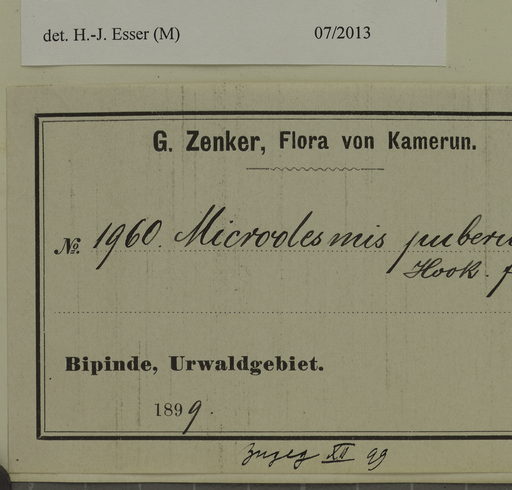 det. H.-J. Esser (M) 07/2013
G. Zenker, Flora von Kamerun.
No. 1960. Microdesmis puberu
Hook. f
Bipinde, Urwaldgebiet.
1899.
XII 99